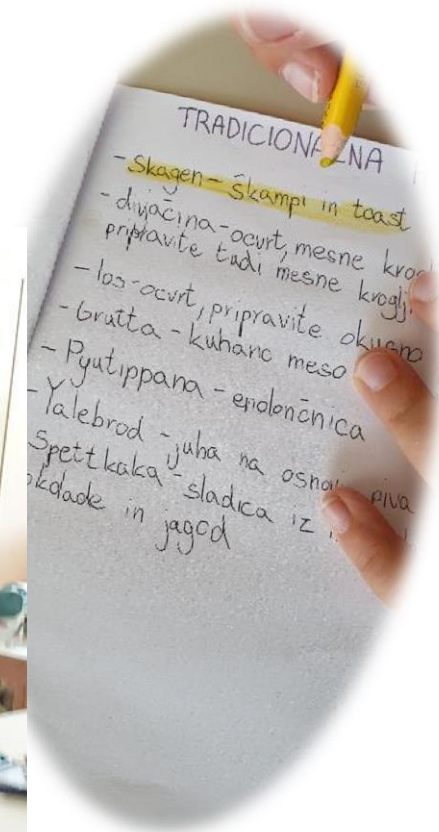 TRADICIONALNA
- Skagen - Škampi in toast
- divjačina - ocvrt, mesne
pripravite tudi mesne
- los - ocvrt, pripravite okusno
- Grutta - kuhano meso
- Pyutippana - enolončnica
- Yalebrod - juha na osnovi piva
Spettkaka - sladica iz
in jagod